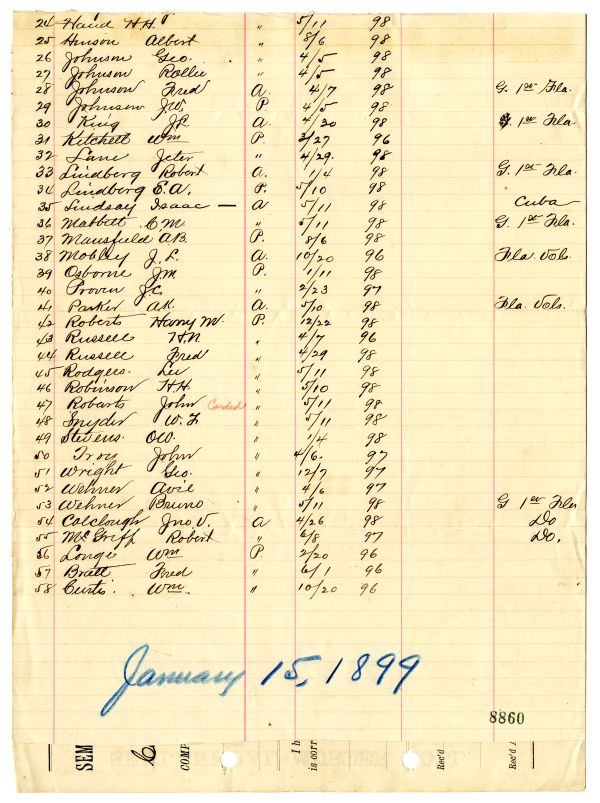 24 Hand H.H. " 5/11 98
25 Hinson Albert " 8/6 98
26 Johnson Geo. " 4/5 98
27 Johnson Rollie " 4/5 98
28 Johnson Fred A. 4/7 98 G. 1st Fla.
29 Johnson J.W. P 4/5 98
30 King A. 4/20 98 G. 1st Fla.
31 Kitchell Wm P. 3/27 96
32 Lane Jeter " 4/29. 98
33 Lindberg Robert A. 1/4 98 G. 1st Fla.
34 Lindberg E.A. P. 5/10 98
35 Lindsay Isaac — A 5/11 98 Cuba
36 Mabbett C.M. " 5/11 98 G. 1st Fla.
37 Mansfield A.B. P. 8/6 98
38 Mobley J.L. A. 10/20 96 Fla. Vols.
39 Osborne Jm P. 1/11 98
40 Proven J.C. " 2/23 97
41 Parker A.K. A. 5/10 98 Fla. Vols.
42 Roberts Harry M. P. 12/22 98
43 Russell H.N " 4/7 96
44 Russell Fred " 4/29 98
45 Rodgers. Lee " 5/11 98
46 Robinson H.H. " 5/10 98
47 Robarts John Carded " 5/11 98
48 Snyder W.F. " 5/11 98
49 Stevens. O.W. " 1/4 98
50 Troy John " 4/6. 97
51 Wright Geo. " 12/7 97
52 Wehner Avie " 4/6 97
53 Wehner Bruno " 5/11 98 G 1st Fla
54 Colclough Jno. V. A 4/26 98 Do
55 McGriff Robert " 6/8 97 Do.
56 Longe Wm P. 2/20 96
57 Bratt Fred " 6/1 96
58 Curtis. Wm. " 10/20 96
January 15, 1899
8860
SEM
C
COMP
I h
is corr
Rec'd
Rec'd